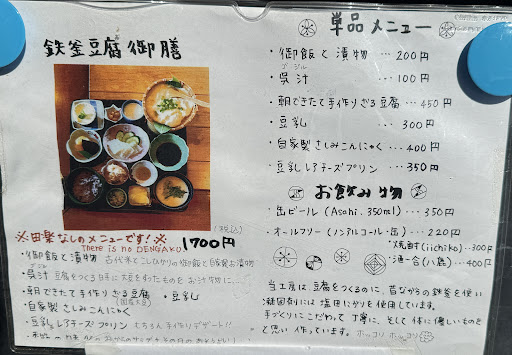 鉄釜豆腐御膳
(税込)
※田楽なしのメニューです!※
There is no DENGAKU
1700円
・御飯と漬物 古代米とこしひかりの御飯と自家製お漬物
・呉汁 豆腐をつくる時に大豆をわたものをお汁物に…
・朝できたて手作りざる豆腐 ・豆乳
(国産大豆)
・自家製さしみこんにゃく
・豆乳レアチーズプリン もちろん手作りデザート!!
単品メニュー
・御飯と漬物 … 200円
ゴージル
・呉汁 … 100円
・朝できたて手作りざる豆腐 … 450円
・豆乳 … 300円
・自家製さしみこんにゃく … 400円
・豆乳レアチーズプリン … 350円
お飲み物
・缶ビール(Asahi. 350ml) … 350円
・オールフリー(ノンアルコール・缶) … 220円
・焼酎(iichiko)‥300円
・酒一合(八鹿) … 400円
当工房は、豆腐をつくるのに、昔ながらの鉄釜を使い
凝固剤には塩田にがりを使用しています。
手づくりにこだわって丁寧に、そして体に優しいものを
と思い作っています。ホッコリ ホッコリ